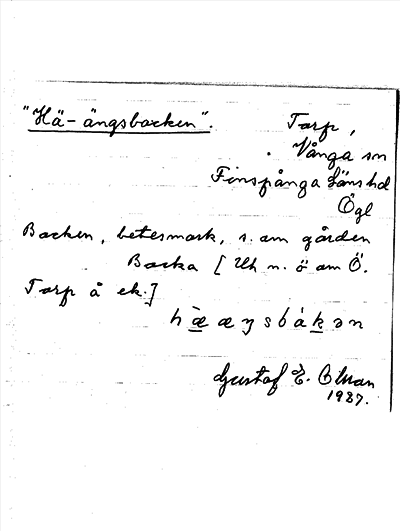 "Hä-ängsbacken". Torp,
Vånga sn
Finspånga läns hd
Ögl
Backen, betesmark, s. om gården
Backa [Uh n. ö om Ö.
Torp å ek.]
hæ̀æŋsbákən
Gustaf E. Olsson
1937.